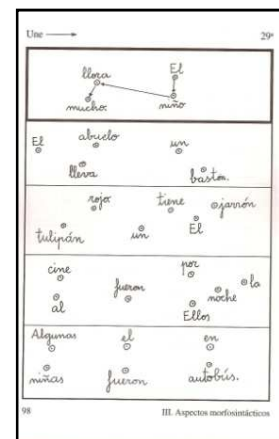 Une 29ª
llora El
mucho. niño
El abuelo un
lleva bastón.
rojo tiene jarrón
tulipán un El
cine por la
al fueron noche
Ellos
Algunas el en
niñas fueron autobús.
98 III. Aspectos morfosintácticos